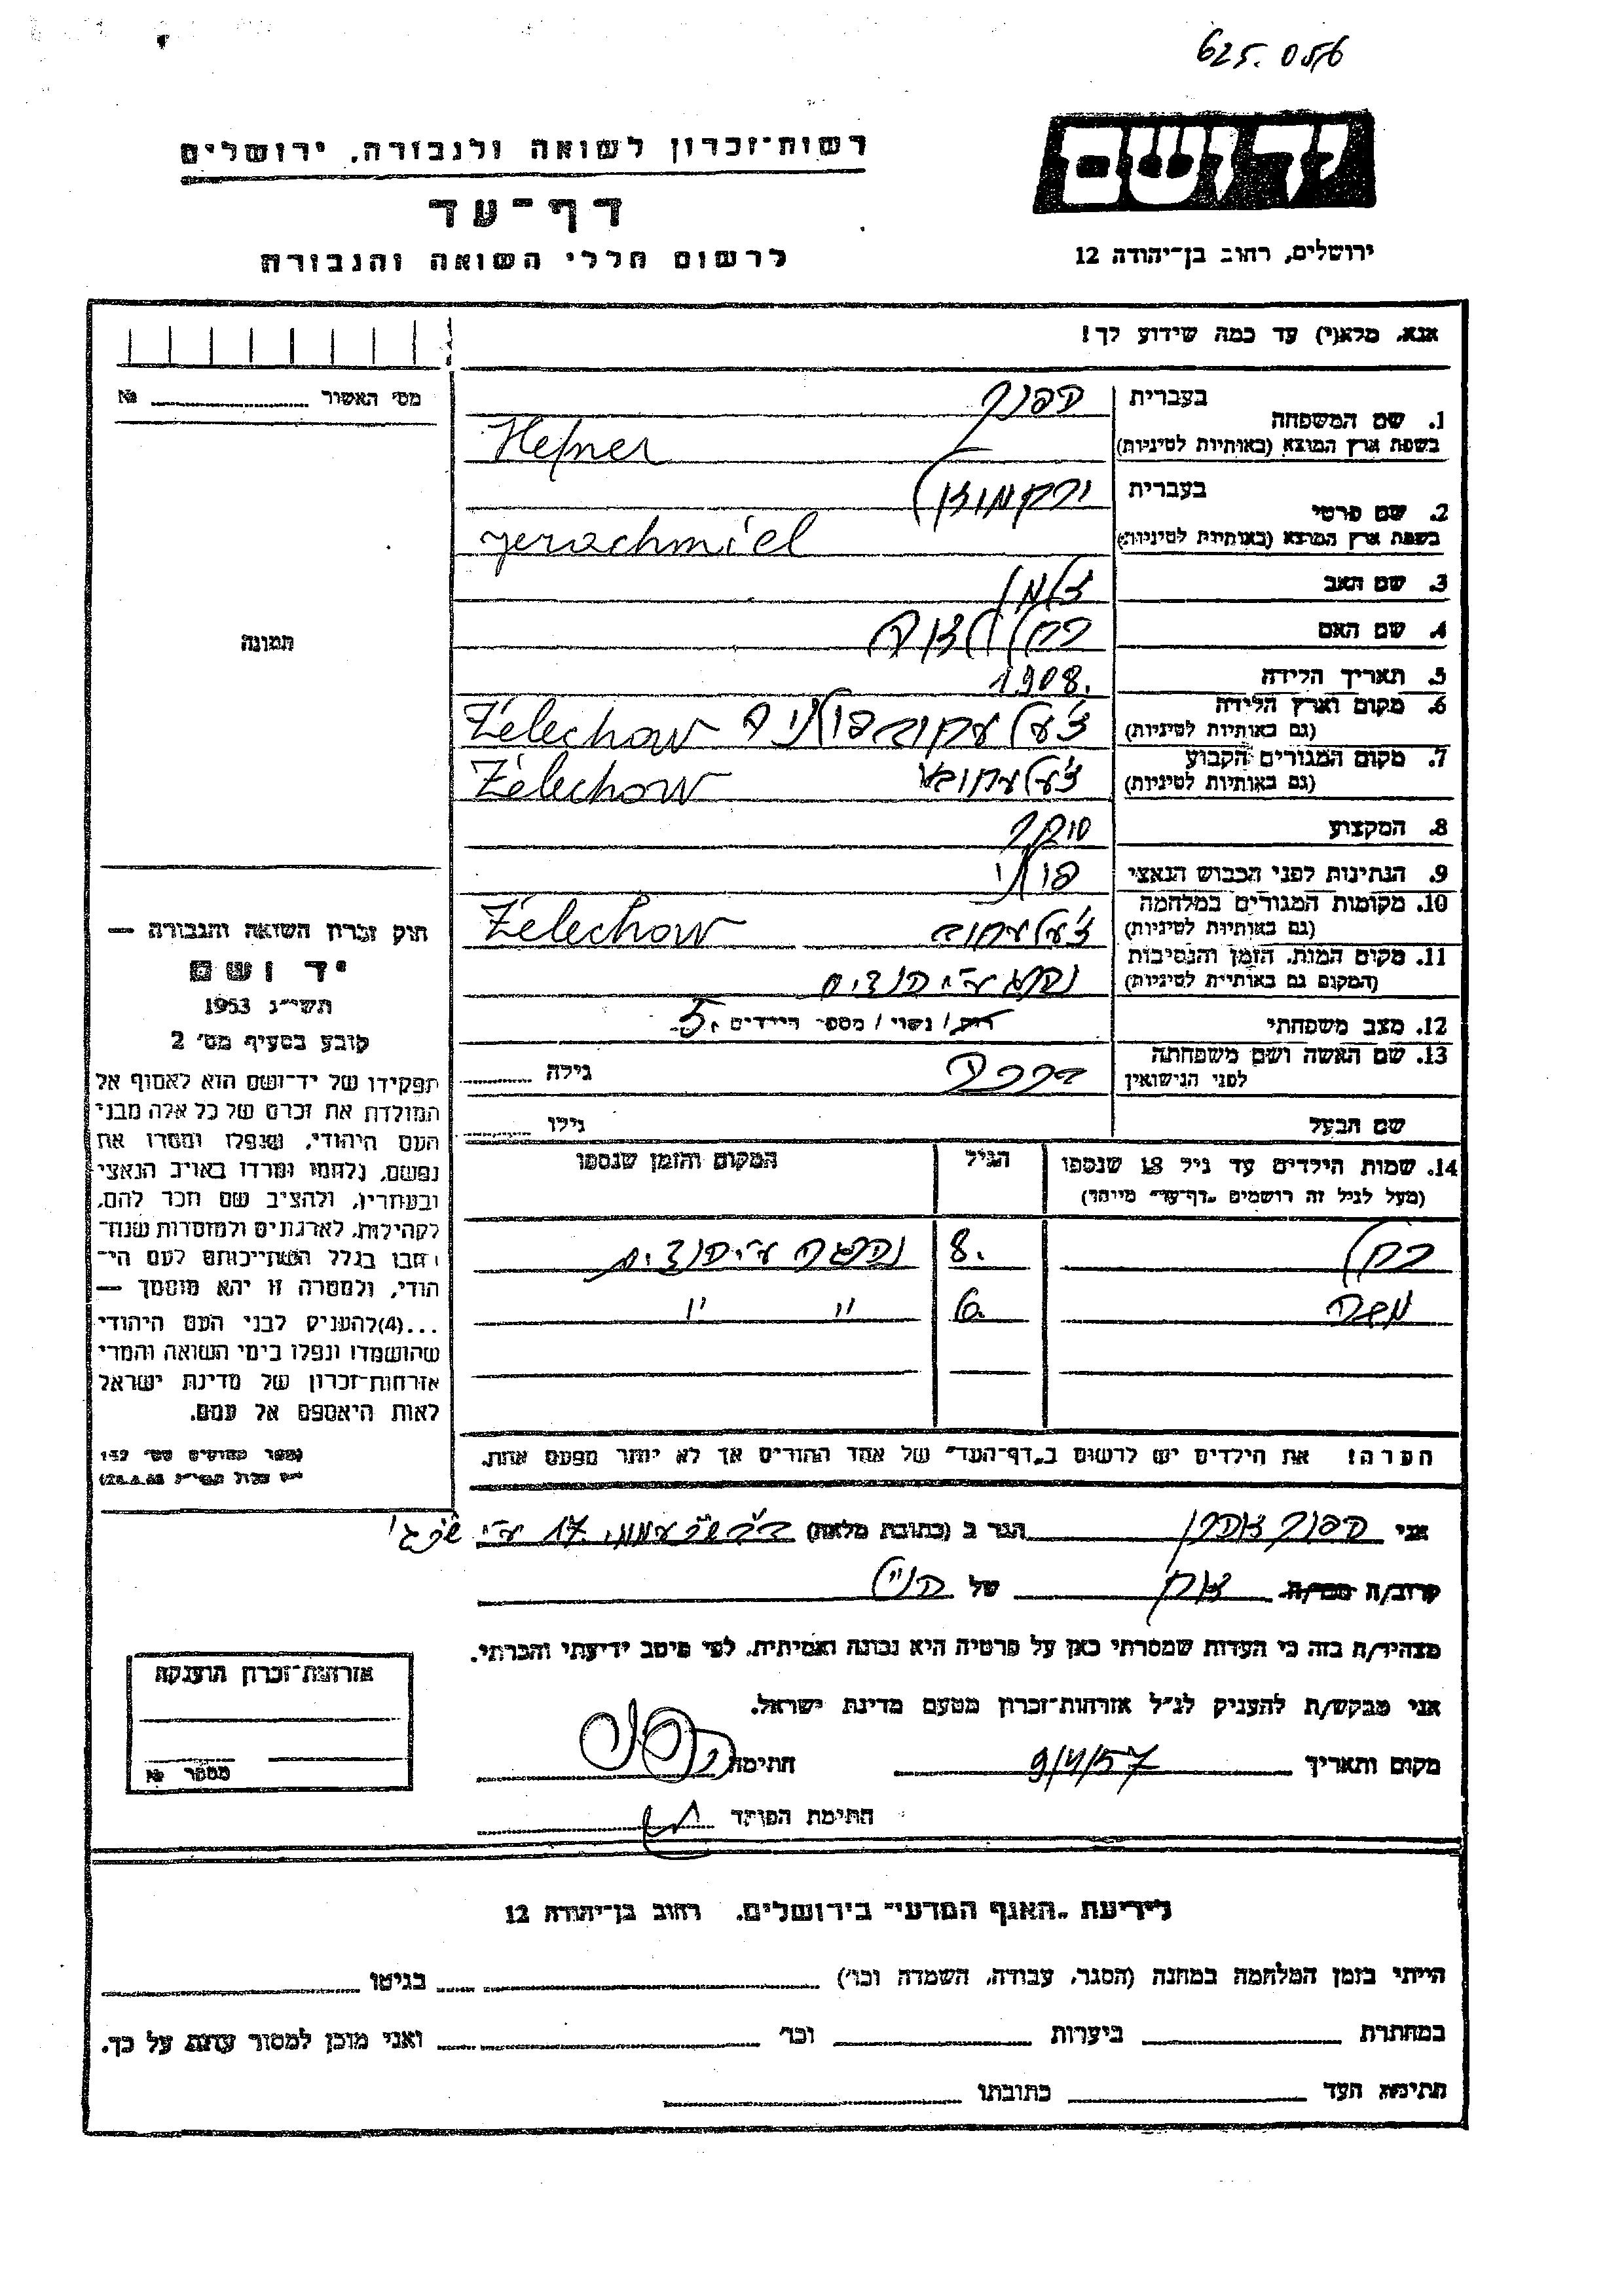 625.056
רשות־זכרון לשואה ולגבורה, ירושלים
יד ושם
דף־עד
ירושלים, רחוב בן־יהודה 12
לרשום חללי השואה והגבורה
אנא, מלא(י) עד כמה שידוע לך!
מס' האשור № 
1. שם המשפחה
בעברית הפנר
בשפת ארץ המוצא (באותיות לטיניות) Hefner
2. שם פרטי
בעברית ירחמיאל
בשפת ארץ המוצא (באותיות לטיניות) jerachmiel
תמונה
3. שם האב זלמן
4. שם האם רחל
5. תאריך הלידה 1908.
6. מקום וארץ הלידה (גם באותיות לטיניות) ז'עלעכוב פולניה Żelechow
7. מקום המגורים הקבוע (גם באותיות לטיניות) Żelechow
8. המקצוע סוחר
9. הנתינות לפני הכבוש הנאצי פולני
10. מקומות המגורים במלחמה (גם באותיות לטיניות) Żelechow
11. מקום המות, הזמן והנסיבות (המקום גם באותיות לטיניות) נהרג ע"י הנצים
12. מצב משפחתי רוק / נשוי / מספר הילדים 5.
13. שם האשה ושם משפחתה לפני הנישואין גילה
שם הבעל גילו
14. שמות הילדים עד גיל 18 שנספו הגיל המקום והזמן שנספו
(מעל לגיל זה רושמים "דף־עד" מיוחד)
רחל 8. נהרגה ע"י הנצים
6. " "
הערה! את הילדים יש לרשום ב"דף־העד" של אחד ההורים אך לא יותר מפעם אחת.
חוק זכרון השואה והגבורה —
יד ושם
תשי"ג 1953
קובע בסעיף מס' 2
תפקידו של יד־ושם הוא לאסוף אל
המולדת את זכרם של כל אלה מבני
העם היהודי, שנפלו ומסרו את
נפשם, נלחמו ומרדו באויב הנאצי
ובעוזריו, ולהציב שם וזכר להם,
לקהילות, לארגונים ולמוסדות שנח־
רבו בגלל השתייכותם לעם הי־
הודי, ולמטרה זו יהא מוסמך —
...(4)להעניק לבני העם היהודי
שהושמדו ונפלו בימי השואה והמרי
אזרחות־זכרון של מדינת ישראל
לאות היאספם אל עמם.
אני הפנר הגר ב (כתובת מלאה) 17
קרוב/ה מכר/ה אח של הנ"ל
מצהיר/ה בזה כי העדות שמסרתי כאן על פרטיה היא נכונה ואמיתית, לפי מיטב ידיעתי והכרתי.
אני מבקש/ת להעניק לנ"ל אזרחות־זכרון מטעם מדינת ישראל.
אזרחות־זכרון הוענקה
מספר №
מקום ותאריך 9/4/57 חתימה
חתימת הפוקד
לידיעת "האגף המדעי" בירושלים, רחוב בן־יהודה 12
הייתי בזמן המלחמה במחנה (הסגר, עבודה, השמדה וכו') בגיטו
במחתרת ביערות וכו' ואני מוכן למסור עדות על כך.
חתימת העד כתובתו